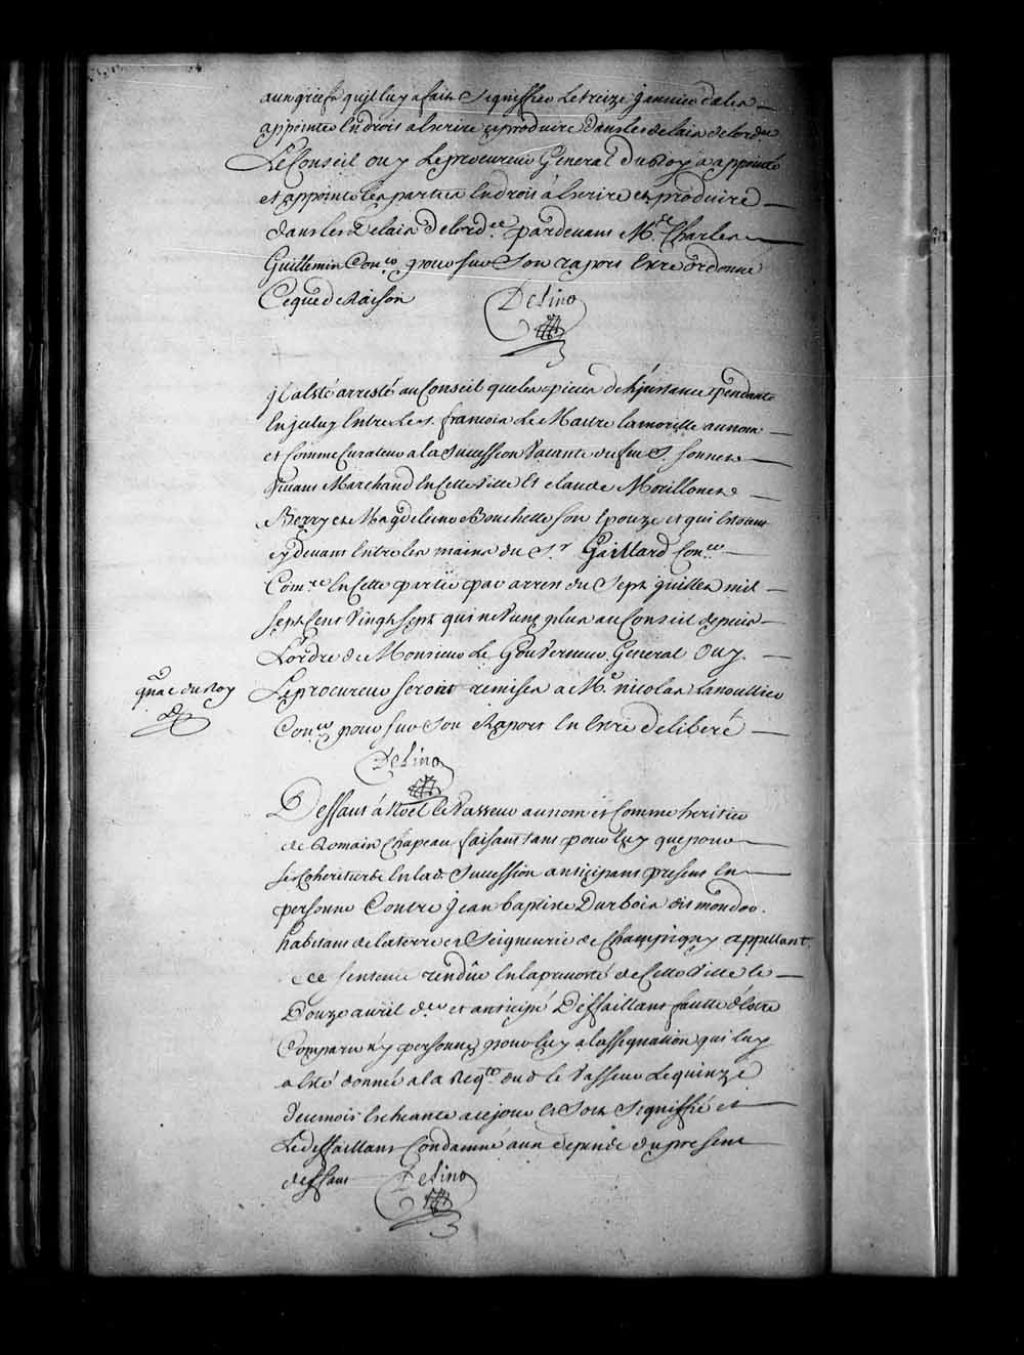 aux griefs qu'il luy a fait signiffier le treize janvier
appointer en droit a escrire et produire dans les delais de lord.ce
Le Conseil ouy Le procureur General du Roy a appointé
et appointe les parties en droit à escrire et produire
dans les delais de lord.ce pardevant M.e Charles
Guillemin Con.er pour sur Son raport Estre ordonné
Ce que de Raison
Delino
jl a esté arresté au Conseil que les pieces de l'jnstance pendante
en jceluy Entre le s. francois Le Maitre lamorille au nom
et Comme Curateur a la Succession Vacante du feu S.
vivant Marchand En Cette Ville Et claude Morillonet
Berry et Magdeleine Bouchette son Epouze et qui Estoient
cy devant Entre les mains du S.r Gaillard Con.er
Com.re En Cette partie par arrest du Sept juillet mil
Sept Cent Vingt Sept qui ne vient plus au Conseil depuis
L'ordre de Monsieur Le Gouverneur General Ouy
Le procureur seront remises a M.e nicolas Lanoullier
g.nal du Roy
Con.er pour sur Son Raport En Estre deliberé
Delino
Deffaut à Noel le Vasseur au nom et Comme heritier
de Romain Chapeau faisant tant pour luy que pour
ses Coheritiers En lad. Succession anticipant present En
personne Contre Jean baptiste Dubois dit
habitant de la terre et Seigneurie de Champigny appellant
de sentence rendüe En la prevosté de Cette Ville le
Douze avril d.er et anticipé Deffaillant faute d'Estre
Comparu n'y personne pour luy a l'assignation qui luy
a Esté donnée a la Req.te dud. le Vasseur Le quinze
du mois Escheante a ce jour Et Soit Signiffié et
Le deffaillant Condamné aux depens du present
deffaut
Delino